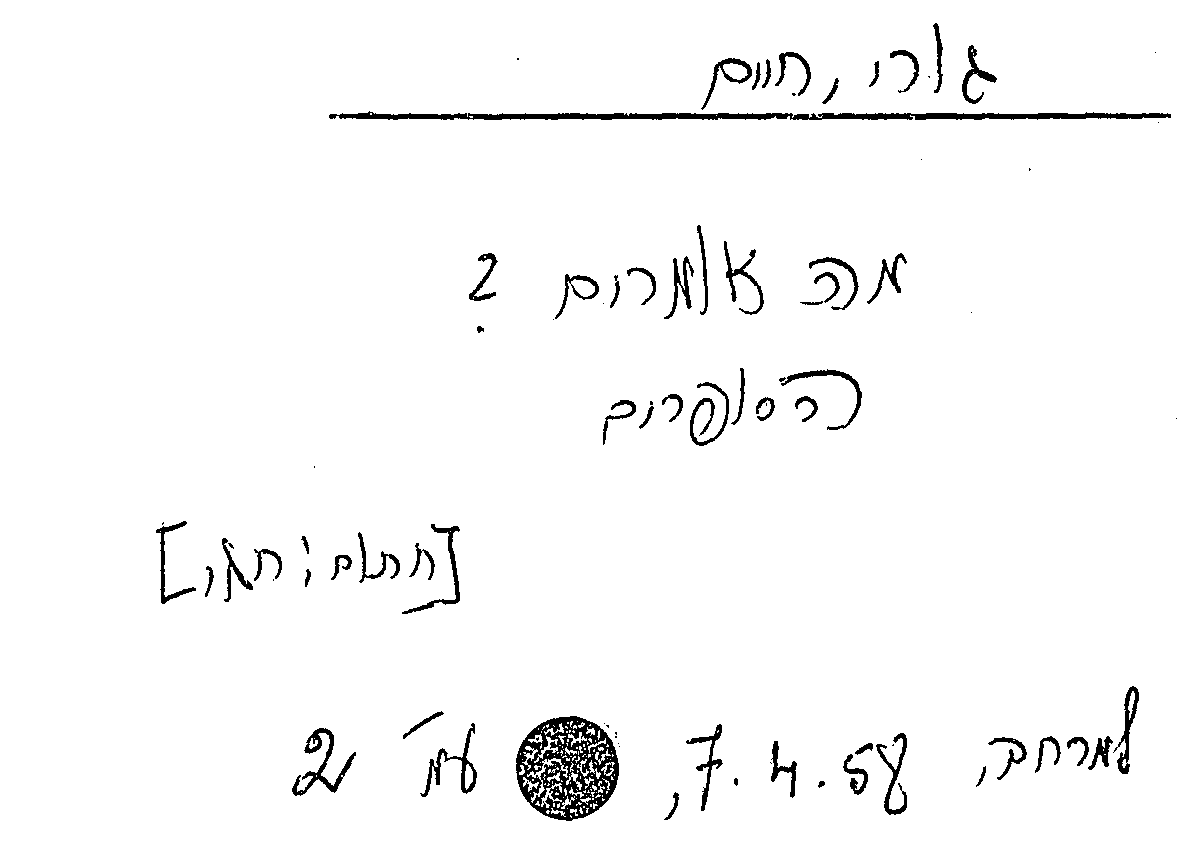 גורי, חיים
מה אומרים ?
הסופרים
[חתום: חגי]
למרחב, 7.4.58, עמ' 2